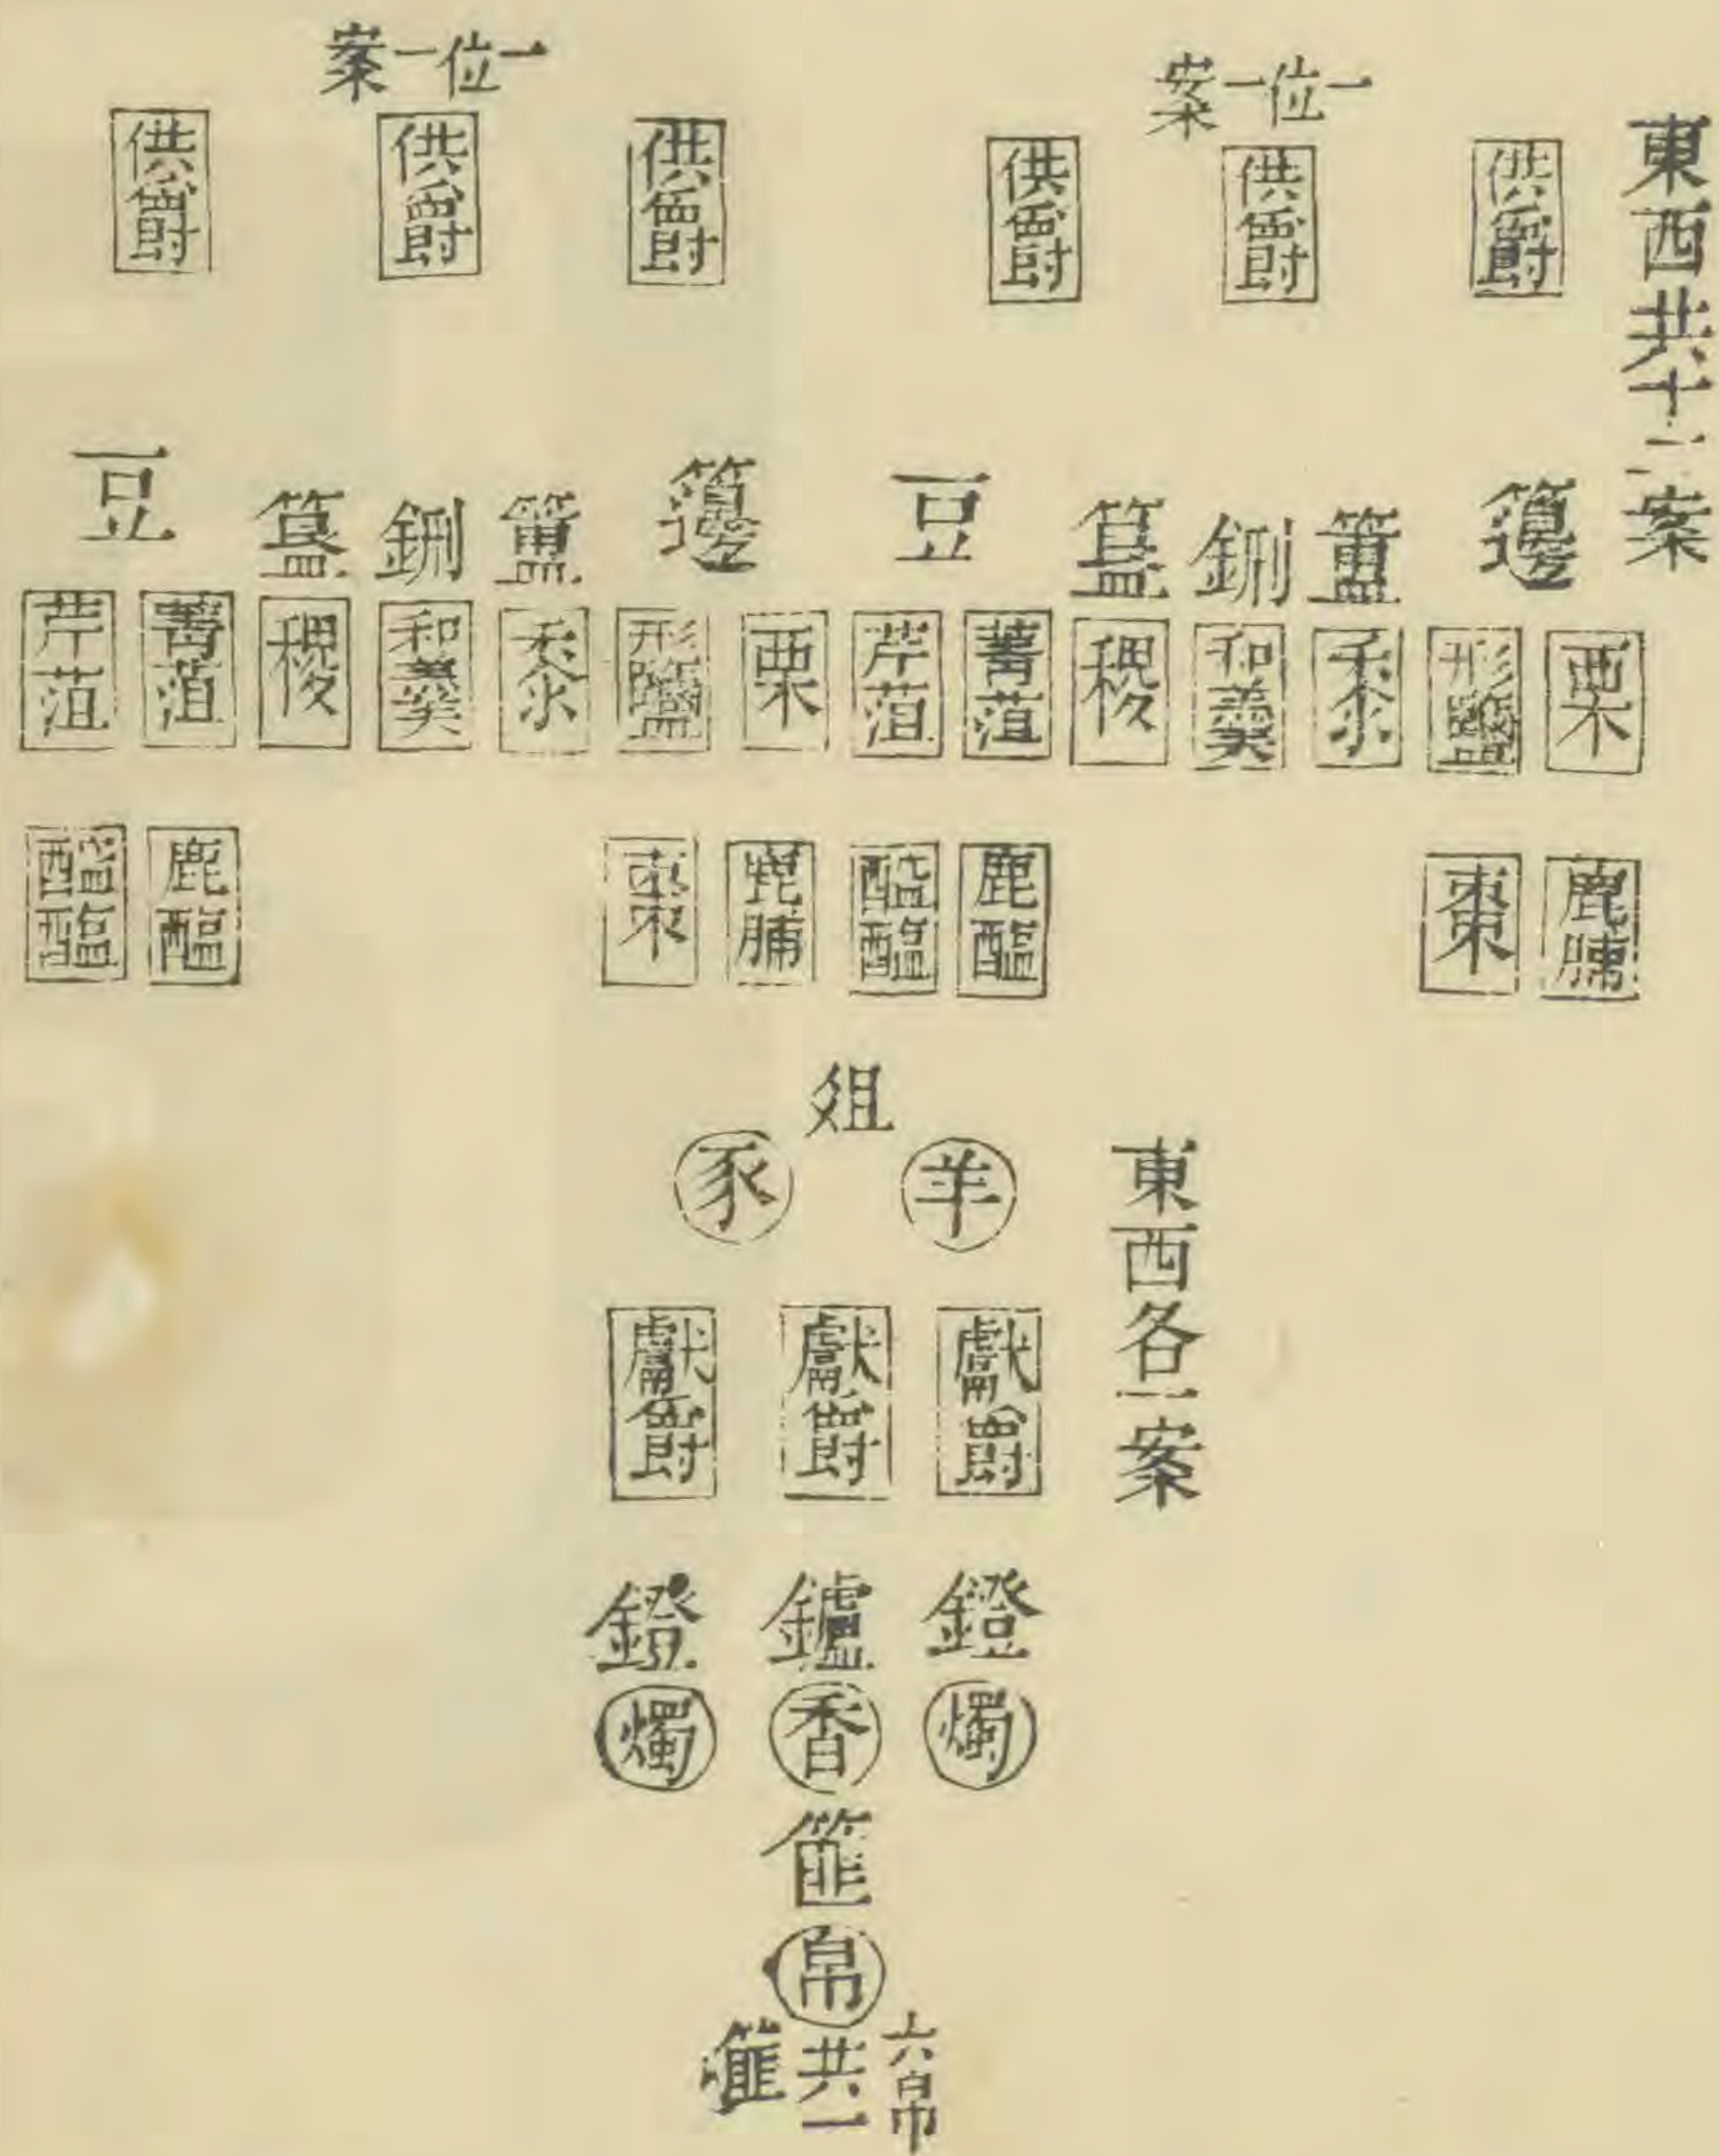 東西共十二案
一位一案
一位一案
供爵 供爵 供爵 供爵 供爵 供爵
籩 簠 鉶 簋 豆 籩 簠 鉶 簋 豆
栗 形鹽 黍 和羹 稷 菁菹 芹菹 栗 形鹽 黍 和羹 稷 菁菹 芹菹
鹿脯 棗 鹿醢 醓醢 鹿脯 棗 鹿醢 醓醢
俎
羊 豕
東西各一案
獻爵 獻爵 獻爵
鐙 鑪 鐙
燭 香 燭
篚
帛
六帛共一篚